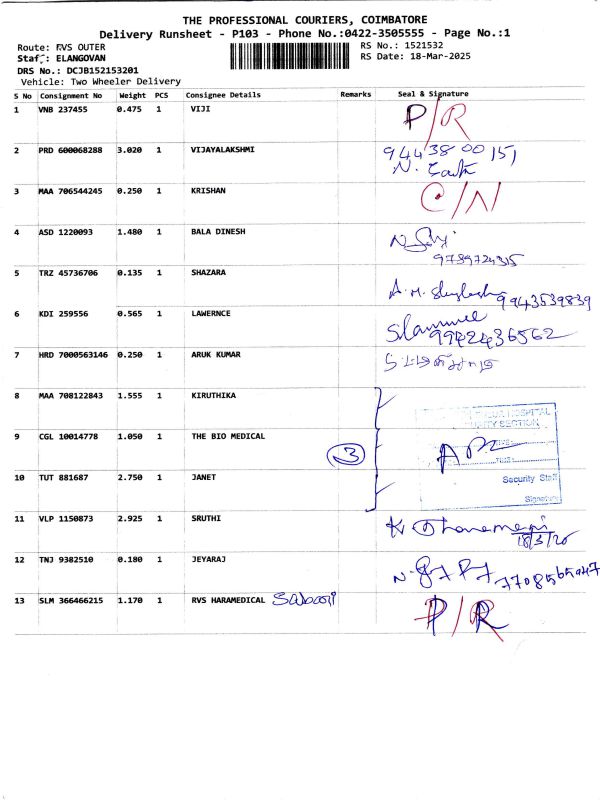 THE PROFESSIONAL COURIERS, COIMBATORE
Delivery Runsheet - P103 - Phone No.:0422-3505555 - Page No.:1
Route: RVS OUTER
RS No.: 1521532
Staff: ELANGOVAN
RS Date: 18-Mar-2025
DRS No.: DCJB152153201
Vehicle: Two Wheeler Delivery
S No Consignment No Weight PCS Consignee Details Remarks Seal & Signature
1 VNB 237455 0.475 1 VIJI P/R
2 PRD 600068288 3.020 1 VIJAYALAKSHMI 9443800151
N.
3 MAA 706544245 0.250 1 KRISHAN C/N
4 ASD 1220093 1.480 1 BALA DINESH
9789724315
5 TRZ 45736706 0.135 1 SHAZARA A.M. 9943539839
6 KDI 259556 0.565 1 LAWERNCE
9942436562
7 HRD 7000563146 0.250 1 ARUK KUMAR
8 MAA 708122843 1.555 1 KIRUTHIKA
HOSPITAL
SECTION
9 CGL 10014778 1.050 1 THE BIO MEDICAL 3
10 TUT 881687 2.750 1 JANET
Security Staff
Signature
11 VLP 1150873 2.925 1 SRUTHI K
18/3/25
12 TNJ 9382510 0.180 1 JEYARAJ 7708565947
13 SLM 366466215 1.170 1 RVS HARAMEDICAL P/R